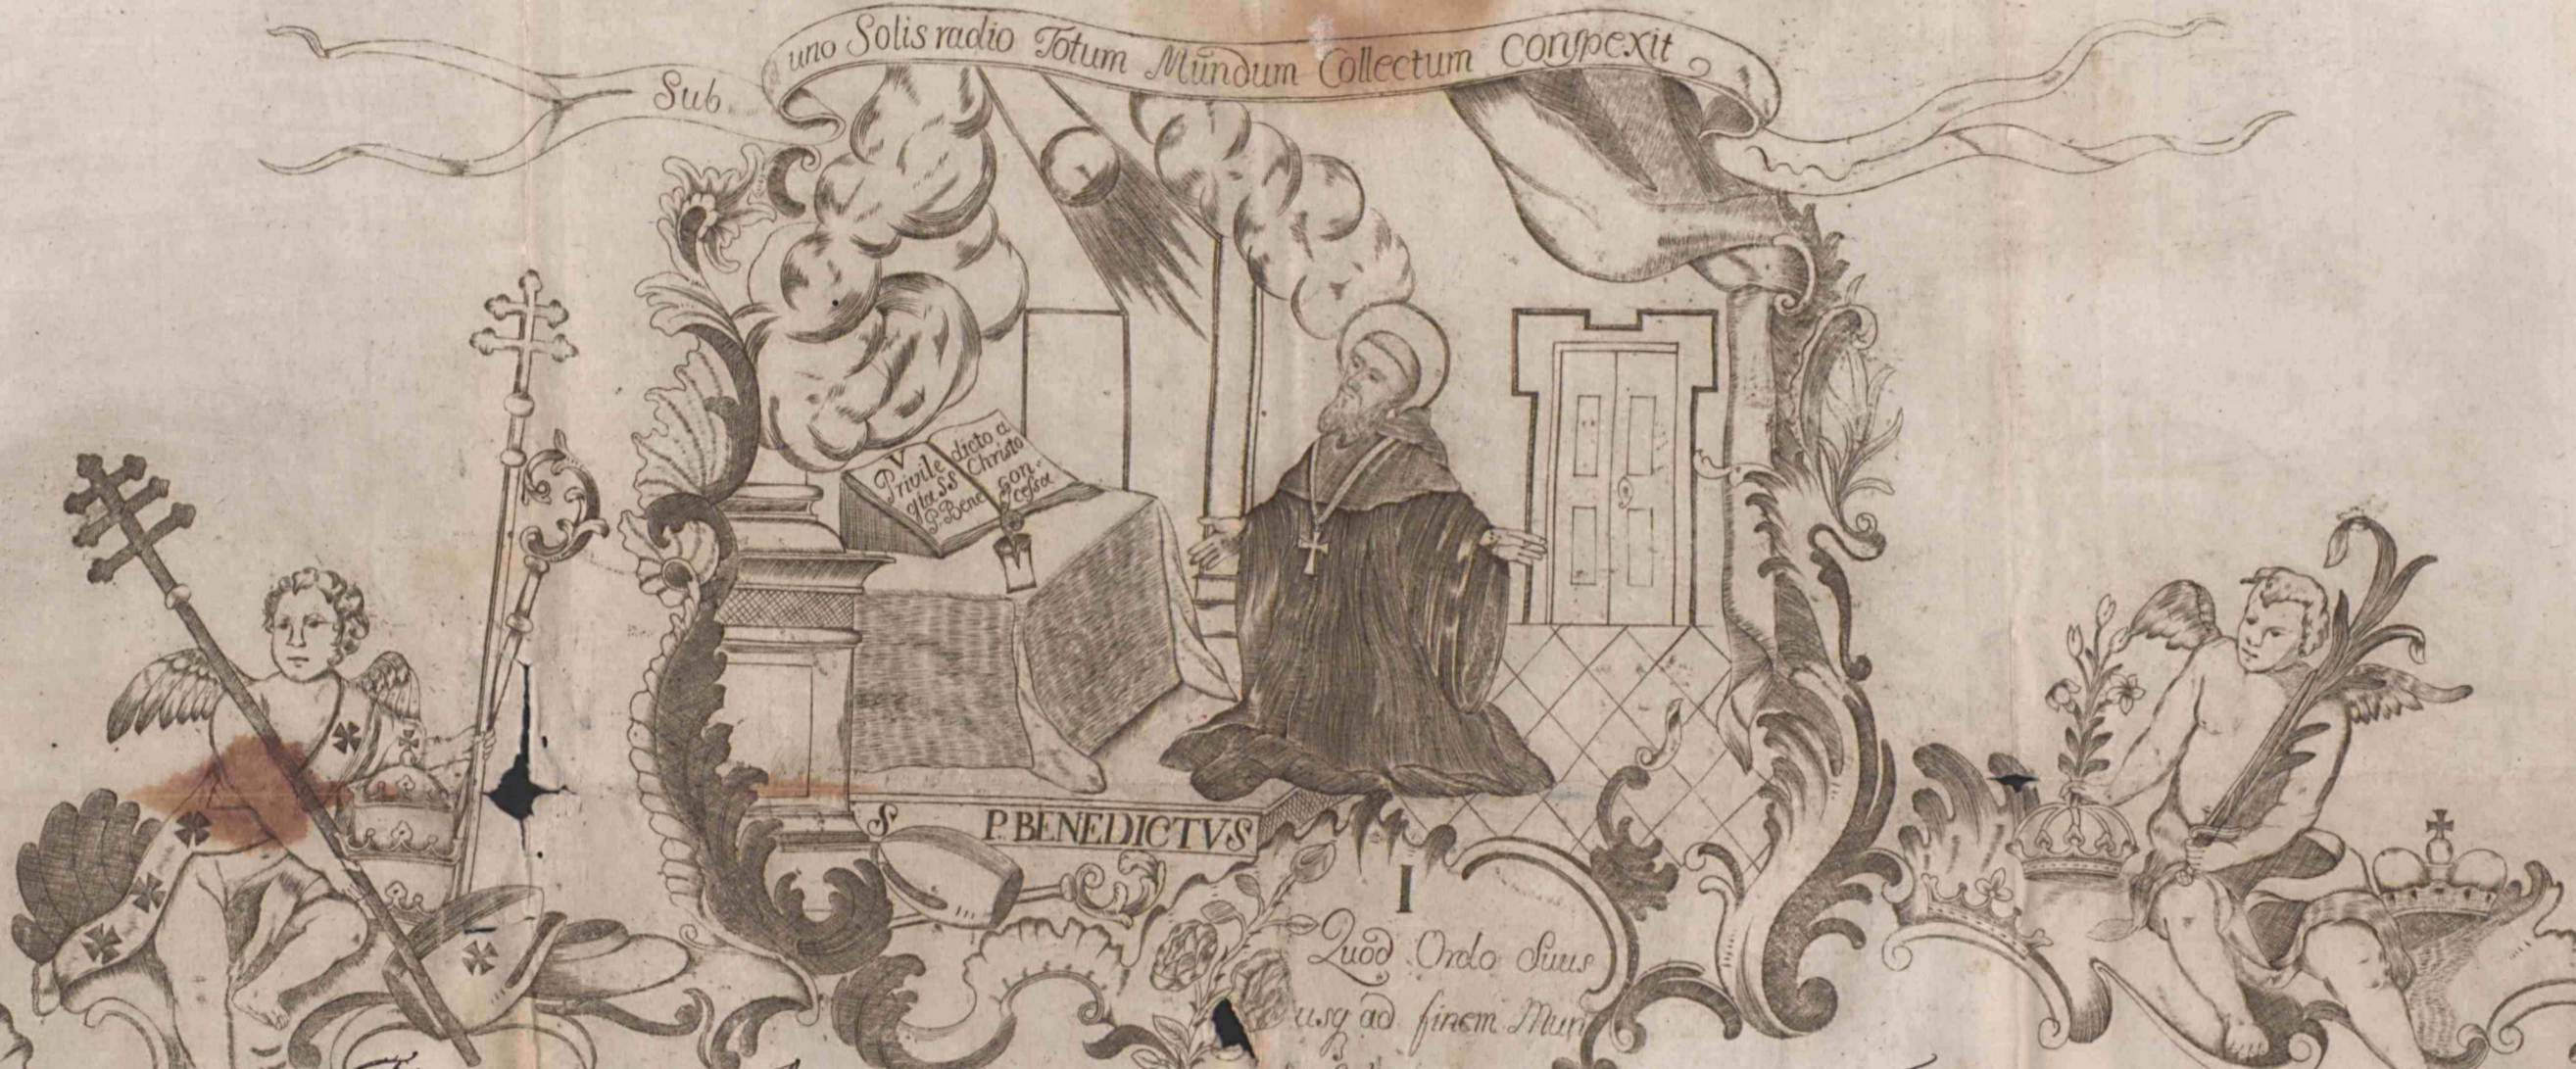 Sub uno Solis radio Totum Mundum Collectum Conspexit
V
Privile
gia SS
P. Bene
dicto a
Christo
con-
cessa
S P. BENEDICTVS
I
Quod Ordo Suus
usq ad finem Mun